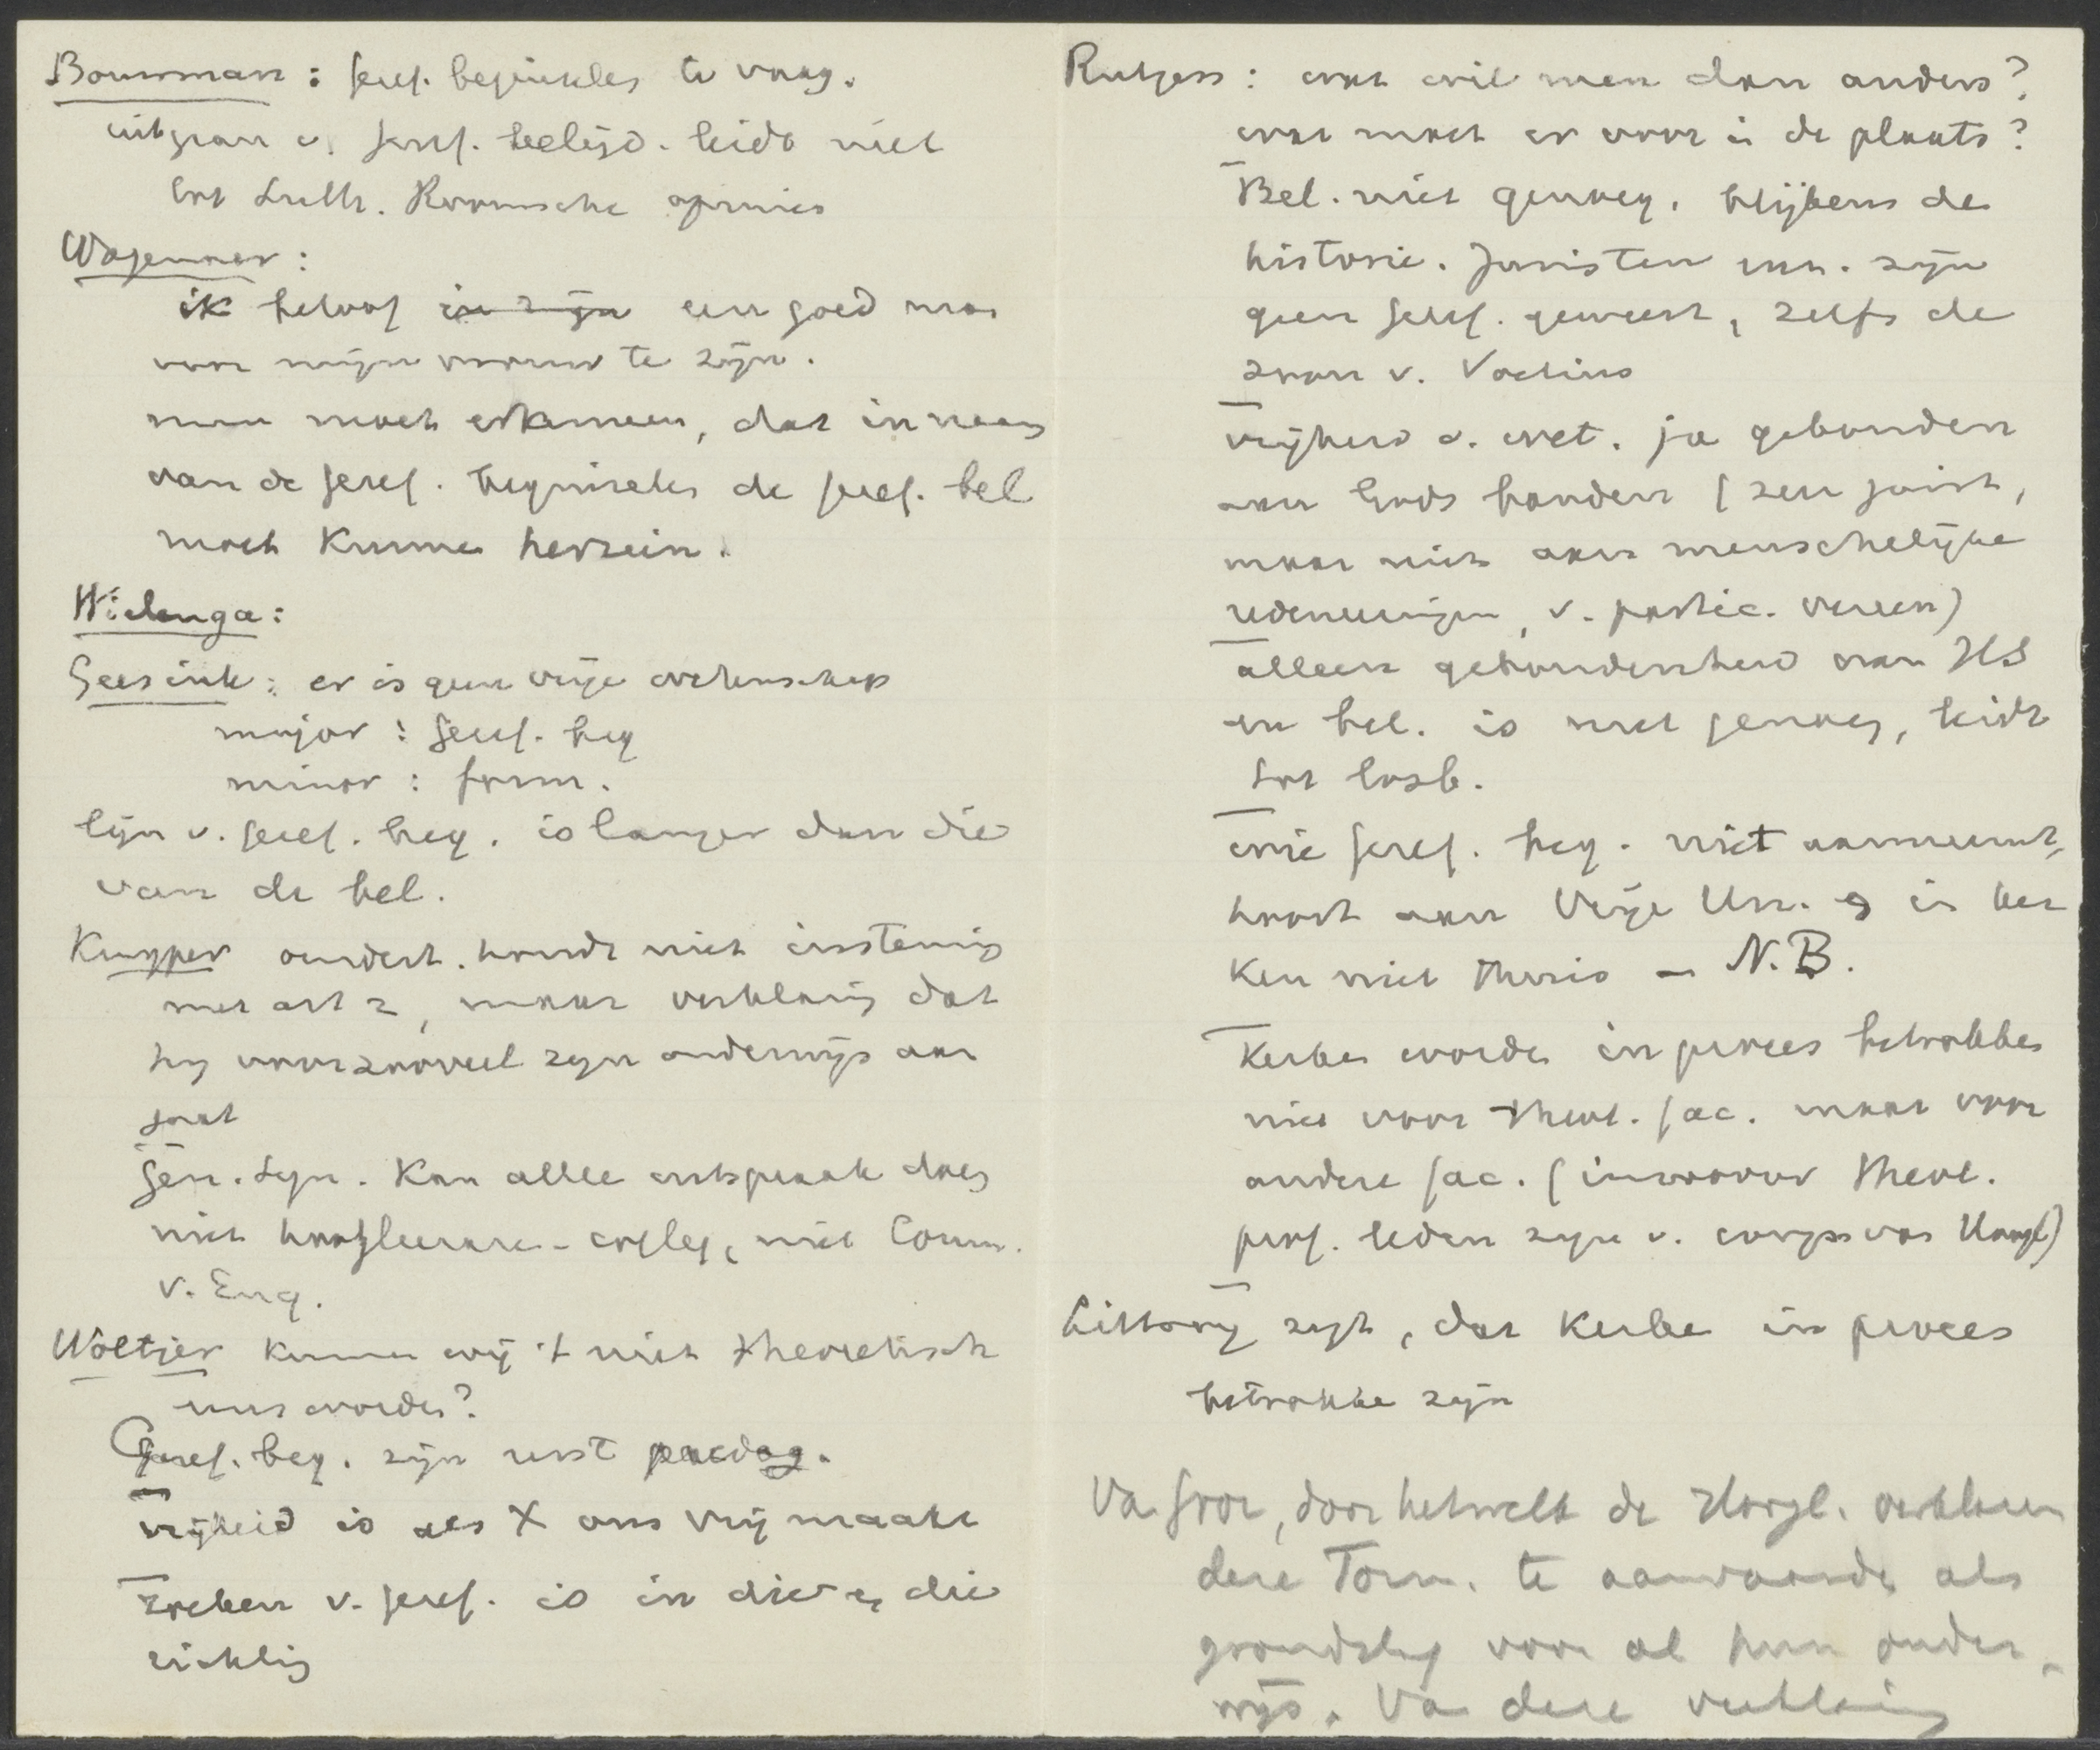 Bouwman : geref. beginselen te vaag.
uitgaan v. geref. belijd. leidt niet
tot Luth. Roomsche opinies
Wagenaar :
ik beloof in zijn een goed man
voor mijn vrouw te zijn.
men moet erkennen, dat in naam
van de geref. beginselen de geref. bel
moet kunnen herzien.
Wielenga :
Geesink : er is geen vrije wetenschap
major : geref. beg
minor : form.
lijn v. geref. beg. is langer dan die
van de bel.
Kuyper ondert. houdt niet instemming
met art 2, maar verklaring dat
hij voor zooveel zijn onderwijs aan
gaat
Gen. Syn. kan alleen uitspraak doen
niet hoogleeraren-colleg, niet Comm.
v. Enq.
Woltjer kunnen wij 't niet theoretisch
eens worden?
Geref. beg. zijn eerst paedag.
vrijheid is als X ons vrij maakt
zoeken v. geref. is in die en die
richting
Rutgers : wat wil men dan anders?
wat moet er voor in de plaats?
Bel. niet genoeg, blijkens de
historie. Juristen enz. zijn
geen geref. geweest, zelfs de
zoon v. Voetius
vrijheid v. wet. ja gebonden
aan Gods banden (zeer juist,
maar niet aan menschelijke
redeneeringen, v. partic. vereen)
alleen gebondenheid aan HS
en bel. is niet genoeg, leidt
tot losb.
wie geref. beg. niet aanneemt,
hoort aan Vrije Un. en in der
Ken niet thuis — N.B.
Kerken worden in proces betrokken
niet voor theol. fac. maar voor
andere fac. (inzoover theol.
prof. leden zijn v. corps van Hoogl)
Littooij zegt, dat Kerken in proces
betrokken zijn
Va door, door hetwelk de Hoogl. verklaren
deze Form. te aanvaarden als
grondslag voor al hun onder-
wijs. Va deze verklaring